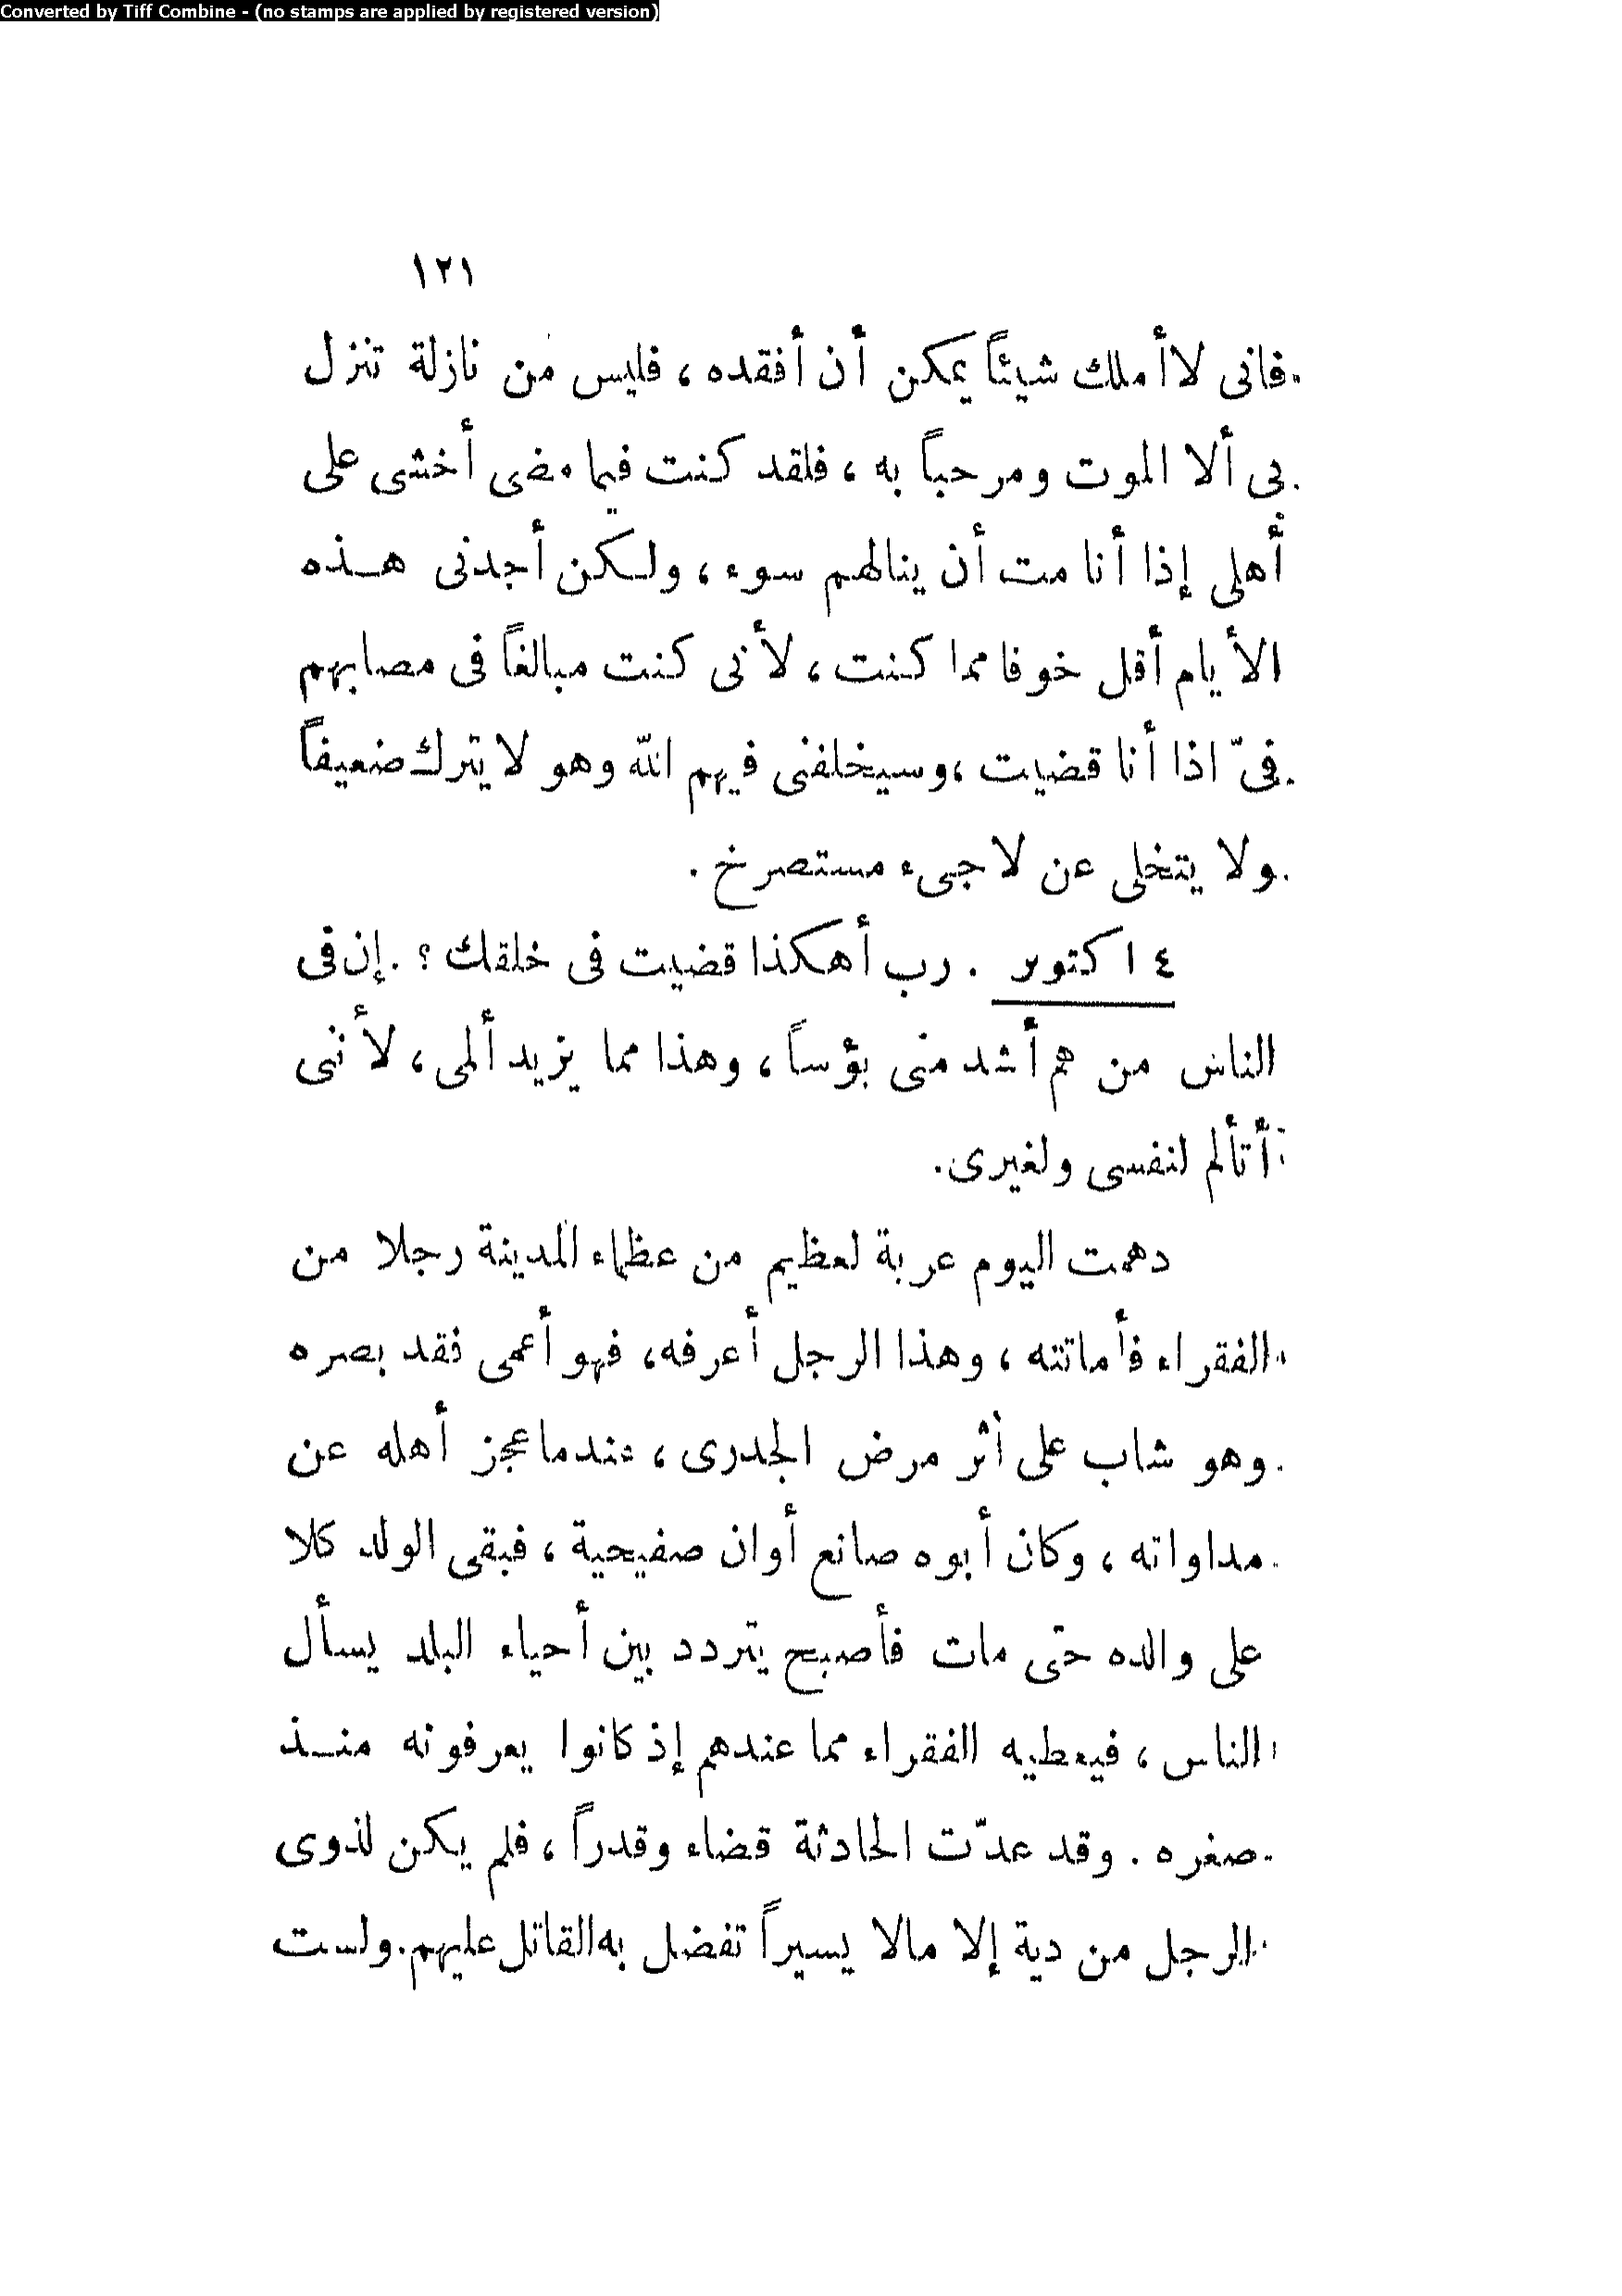 Converted by Tiff Combine - (no stamps are applied by registered version)
١٢١
فانى لا أملك شيئاً يمكن أن أفقده ، فليس من نازلة تنزل
بى ألا الموت ومرحباً به ، فلقد كنت فيما مضى أخشى على
أهلى إذا أنا مت أن ينالهم سوء ، ولكن أجدنى هذه
الأيام أقل خوفا مما كنت ، لأنى كنت مبالغاً فى مصابهم
فىّ اذا أنا قضيت ، وسيخلفنى فيهم الله وهو لا يترك ضعيفاً
ولا يتخلى عن لاجىء مستصرخ .
٤ اكتوبر . رب أهكذا قضيت فى خلقك ؟ . إن فى
الناس من هم أشد منى بؤساً ، وهذا مما يزيد ألمى ، لأننى
أتألم لنفسى ولغيرى .
دهمت اليوم عربة لعظيم من عظماء المدينة رجلا من
الفقراء فأماتته ، وهذا الرجل أعرفه ، فهو أعمى فقد بصره
وهو شاب على أثر مرض الجدرى ، عندما عجز أهله عن
مداواته ، وكان أبوه صانع أوان صفيحية ، فبقى الولد كلا
على والده حتى مات فأصبح يتردد بين أحياء البلد يسأل
الناس ، فيعطيه الفقراء مما عندهم إذ كانوا يعرفونه منذ
صغره . وقد عدّت الحادثة قضاء وقدراً ، فلم يكن لذوى
الرجل من دية إلا مالا يسيراً تفضل به القاتل عليهم . ولست